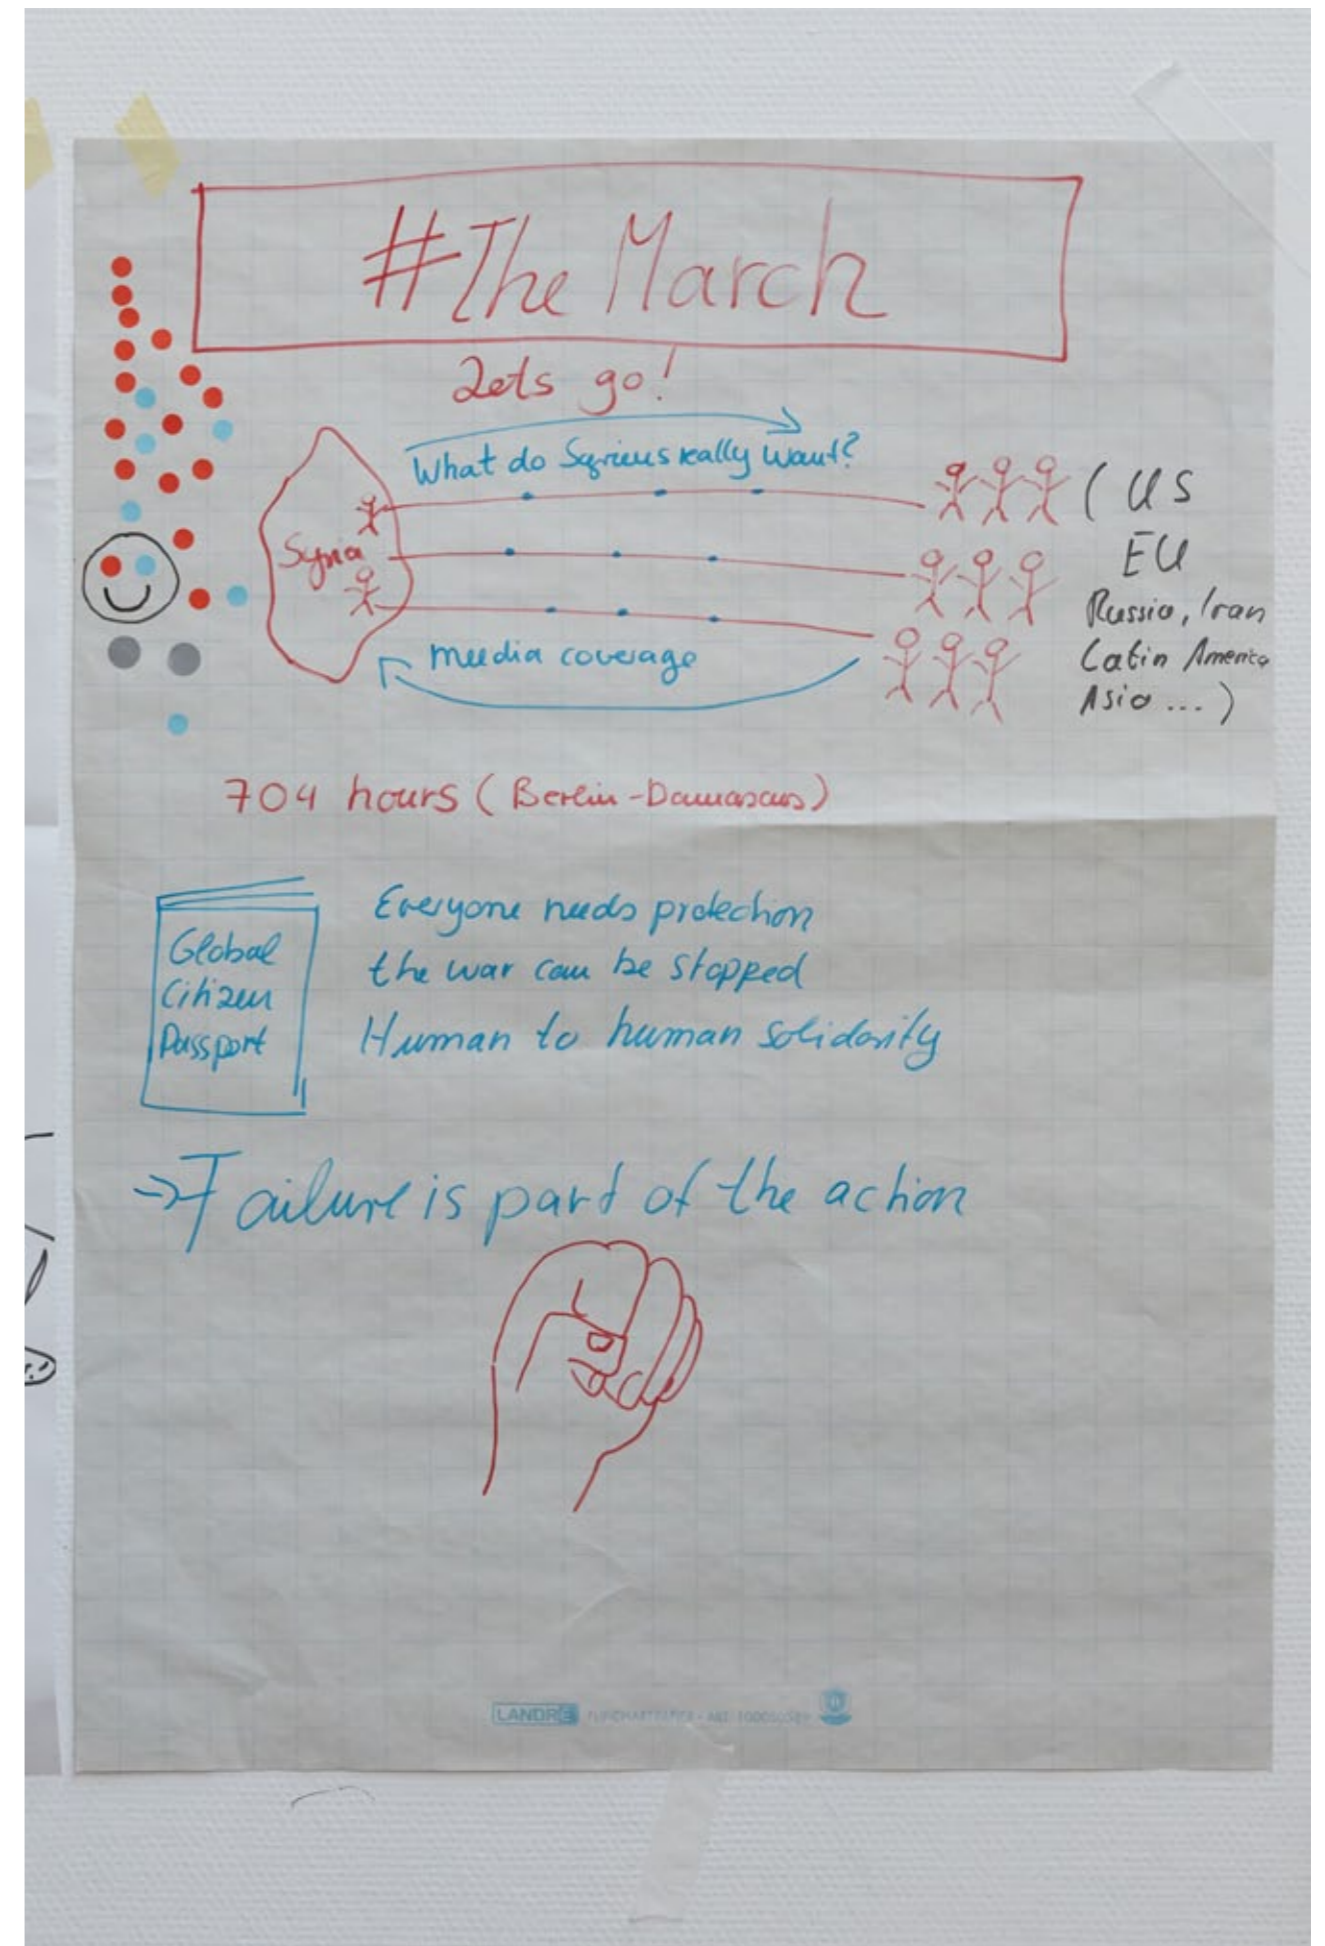 #The March
Lets go!
What do Syriens really want?
Syria
media coverage
( US
EU
Russia, Iran
Latin America
Asia ... )
704 hours ( Berlin-Damascus )
Global
Citizen
Passport
Everyone needs protection
the war can be stopped
Human to human solidarity
=> Failure is part of the action
LANDRÉ